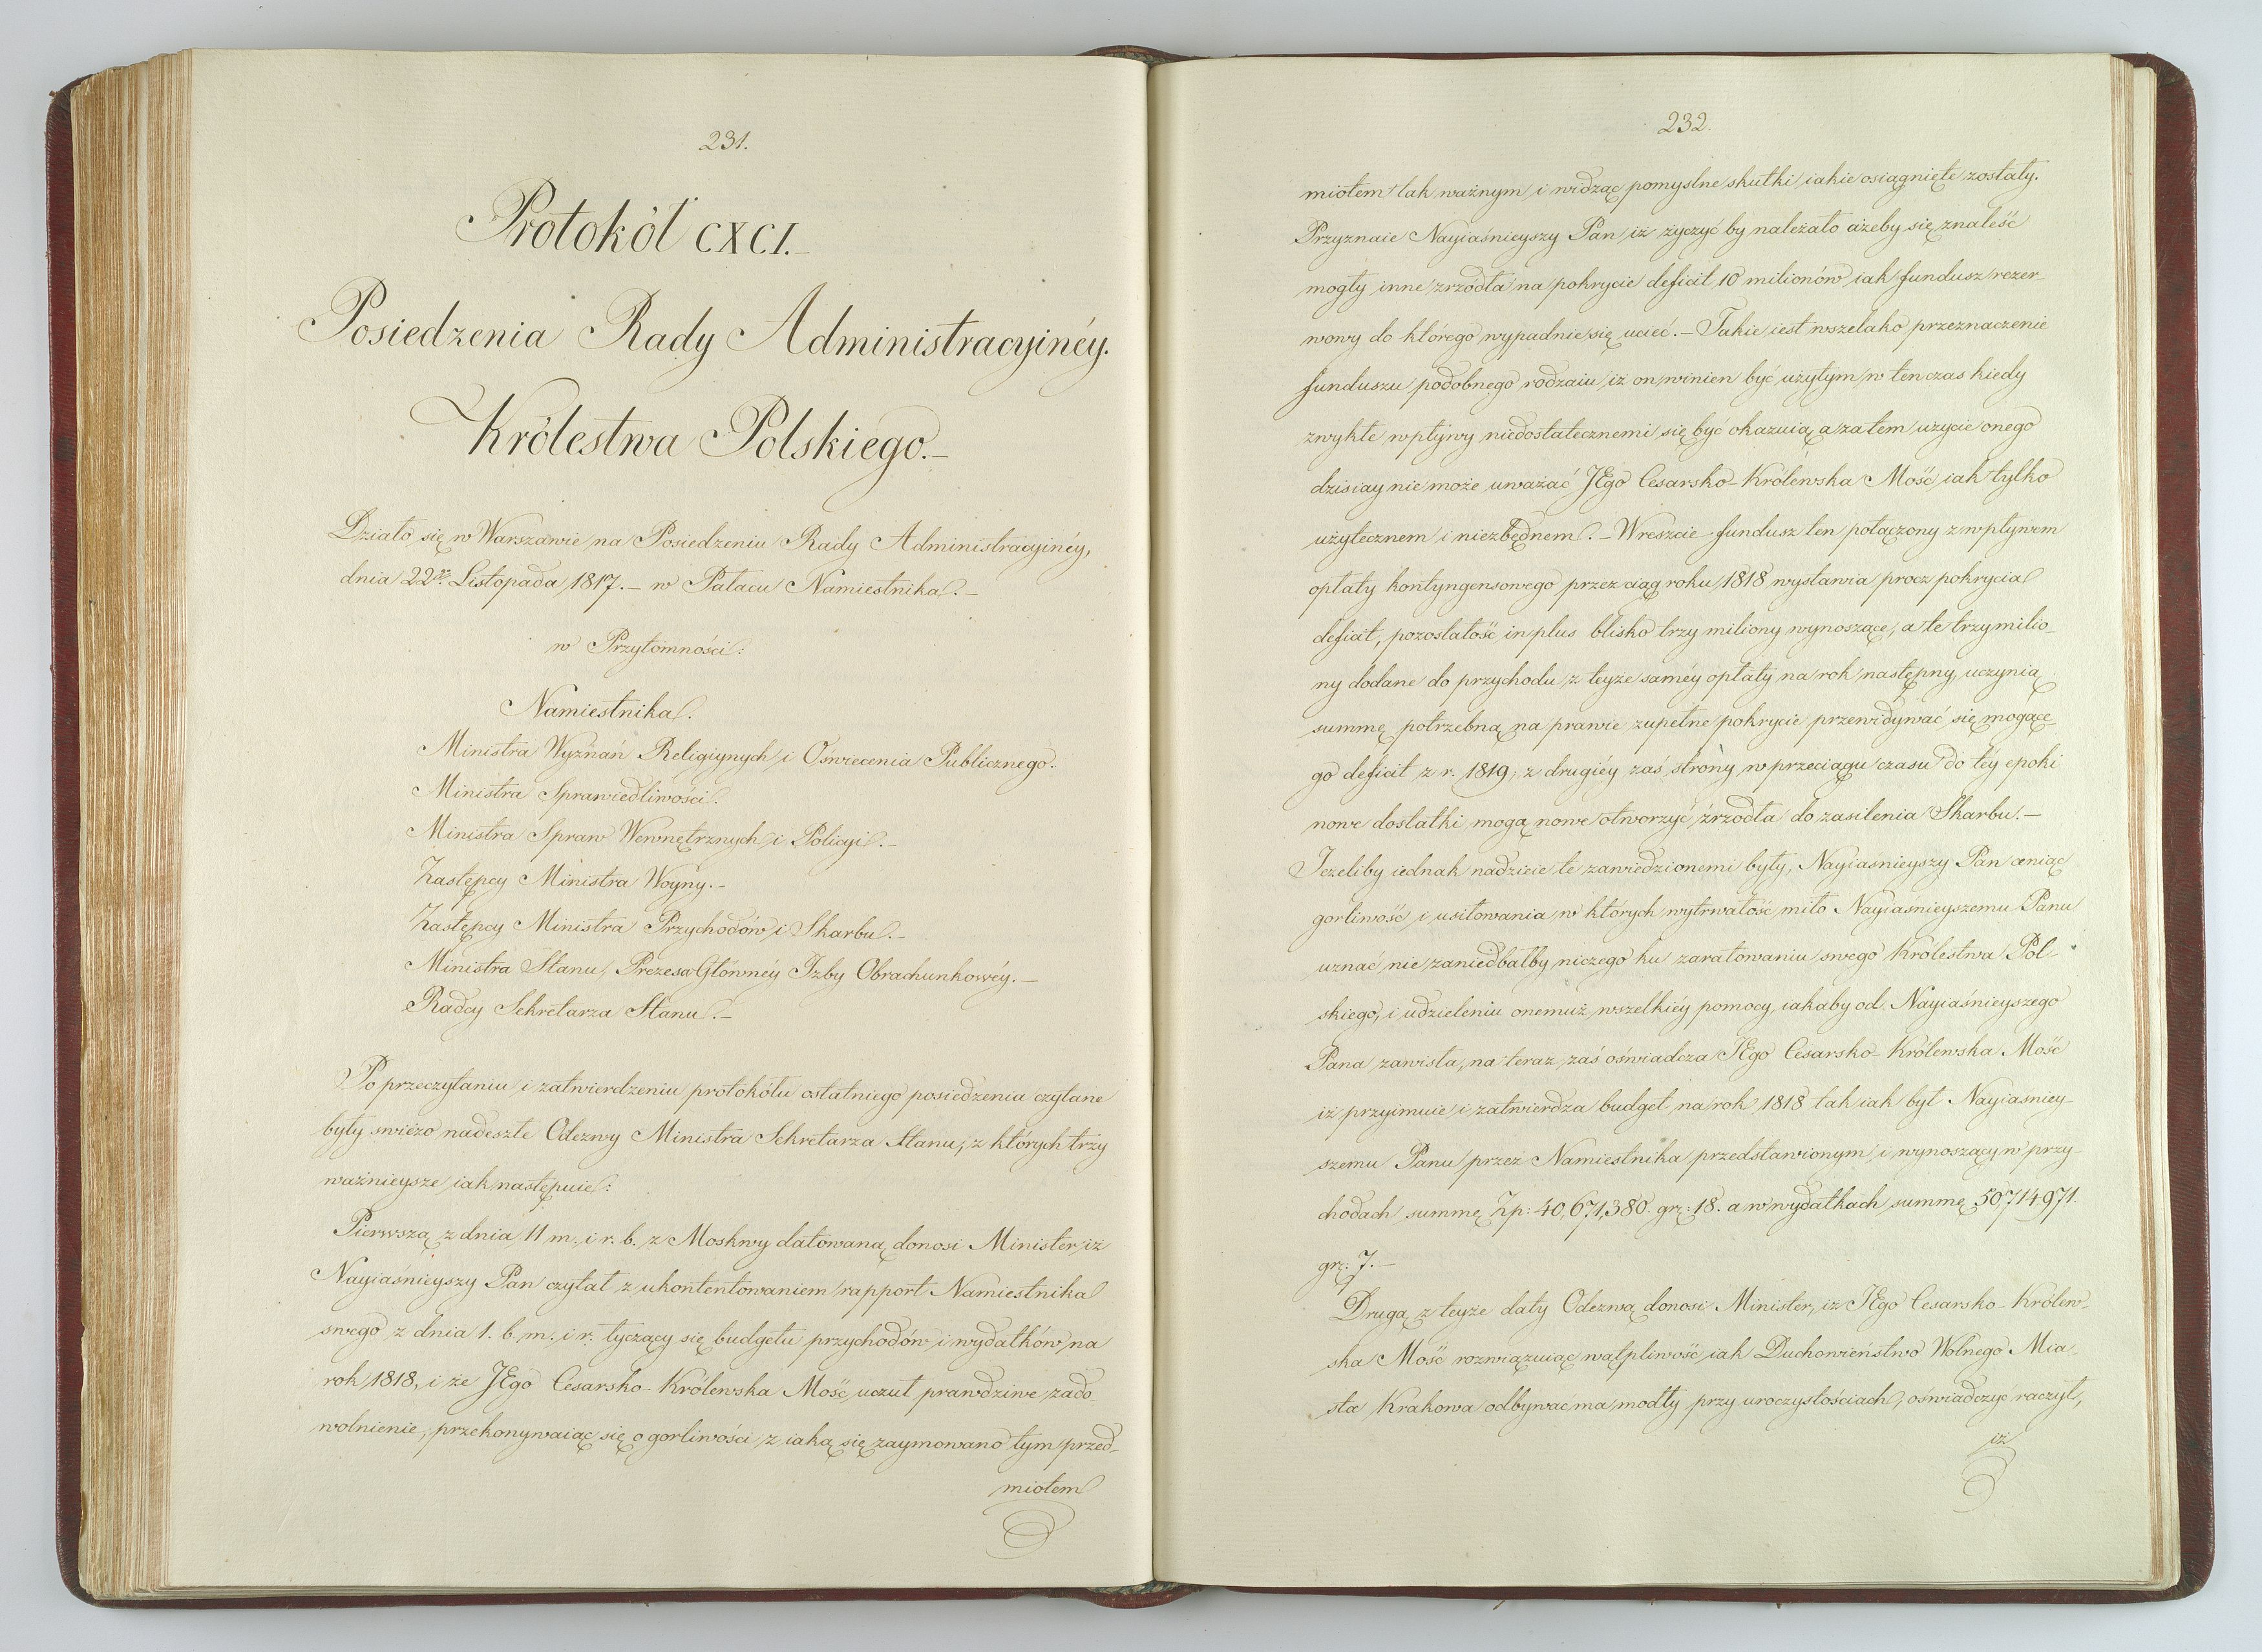 231.
Protokół CXCI.-
Posiedzenia Rady Administracyinéy.
Królestwa Polskiego.-
Działo się w Warszawie na Posiedzeniu Rady Administracyinéy,
dnia 22go Listopada 1817.- w Pałacu Namiestnika.-
w Przytomności:
Namiestnika.
Ministra Wyznań Religiynych i Oświecenia Publicznego.
Ministra Sprawiedliwości.
Ministra Spraw Wewnętrznych i Policyi.-
Zastępcy Ministra Woyny.-
Zastępcy Ministra Przychodów i Skarbu.-
Ministra Stanu, Prezesa Głównéy Izby Obrachunkowéy.-
Radcy Sekretarza Stanu.-
Po przeczytaniu i zatwierdzeniu protokółu ostatniego posiedzenia czytane
były swieżo nadeszłe Odezwy Ministra Sekretarza Stanu, z których trzy
ważnieysze iak następuie:
Pierwszą z dnia 11 m. i r. b. z Moskwy datowaną donosi Minister, iż
Nayiaśnieyszy Pan czytał z ukontentowaniem rapport Namiestnika
swego z dnia 1. b. m. i r. tyczący się budgetu przychodów i wydatków na
rok 1818, i że JEgo Cesarsko-Królewska Mość uczuł prawdziwe zado-
wolnienie, przekonywaiąc się o gorliwości z iaką się zaymowano tym przed-
miotem
232.
miotem tak ważnym i widząc pomyslne skutki iakie osiągnięte zostały.
Przyznaie Nayiaśnieyszy Pan iż życzyć by należało ażeby się znaleść
mogły inne zrzódła na pokrycie deficit 10 milionów iak fundusz rezer-
wowy do którego wypadnie się uciec.- Takie iest wszelako przeznaczenie
funduszu podobnego rodzaiu iż on winien być użytym w ten czas kiedy
zwykłe wpływy niedostatecznemi się być okazuią a zatem użycie onego
dzisiay nie może uważać JEgo Cesarsko-Królewska Mość iak tylko
użytecznem i niezbędnem.- Wreszcie fundusz ten połączony z wpływem
opłaty kontyngensowego przez ciąg roku 1818 wystawia procz pokrycia
deficit, pozostałość in plus blisko trzy miliony wynoszącę, a te trzy milio-
ny dodane do przychodu z teyże saméy opłaty na rok następny uczynią
summę potrzebną na prawie zupełne pokrycie przewidywać się mogące-
go deficit z r. 1819, z drugiéy zaś strony w przeciągu czasu do téy epoki
nowe dostatki mogą nowe otworzyć źrzódła do zasilenia Skarbu.-
Jeżeliby iednak nadzieie te zawiedzionemi były, Nayiasnieyszy Pan ceniąc
gorliwość i usiłowania w których wytrwałość miło Nayiasnieyszemu Panu
uznać nie zaniedbałby niczego ku zaratowaniu swego Królestwa Pol-
skiego, i udzieleniu onemuż wszelkiéy pomocy iakaby od Nayiaśnieyszego
Pana zawisła, na teraz zaś oświadcza JEgo Cesarsko-Królewska Mość
iż przyimuie i zatwierdza budget na rok 1818 tak iak był Nayiaśniey-
szemu Panu przez Namiestnika przedstawionym i wynoszący w przy-
chodach summę Zp: 40,671,380. gr: 18. a w wydatkach summę 50,714,971.
gr: 7.-
Drugą z teyże daty Odezwą donosi Minister, iż JEgo Cesarsko-Królew-
ska Mość rozwiązuiąc wątpliwość iak Duchowieństwo Wolnego Mia-
sta Krakowa odbywac ma modły przy uroczystościach, oświadczyc raczył,
iż